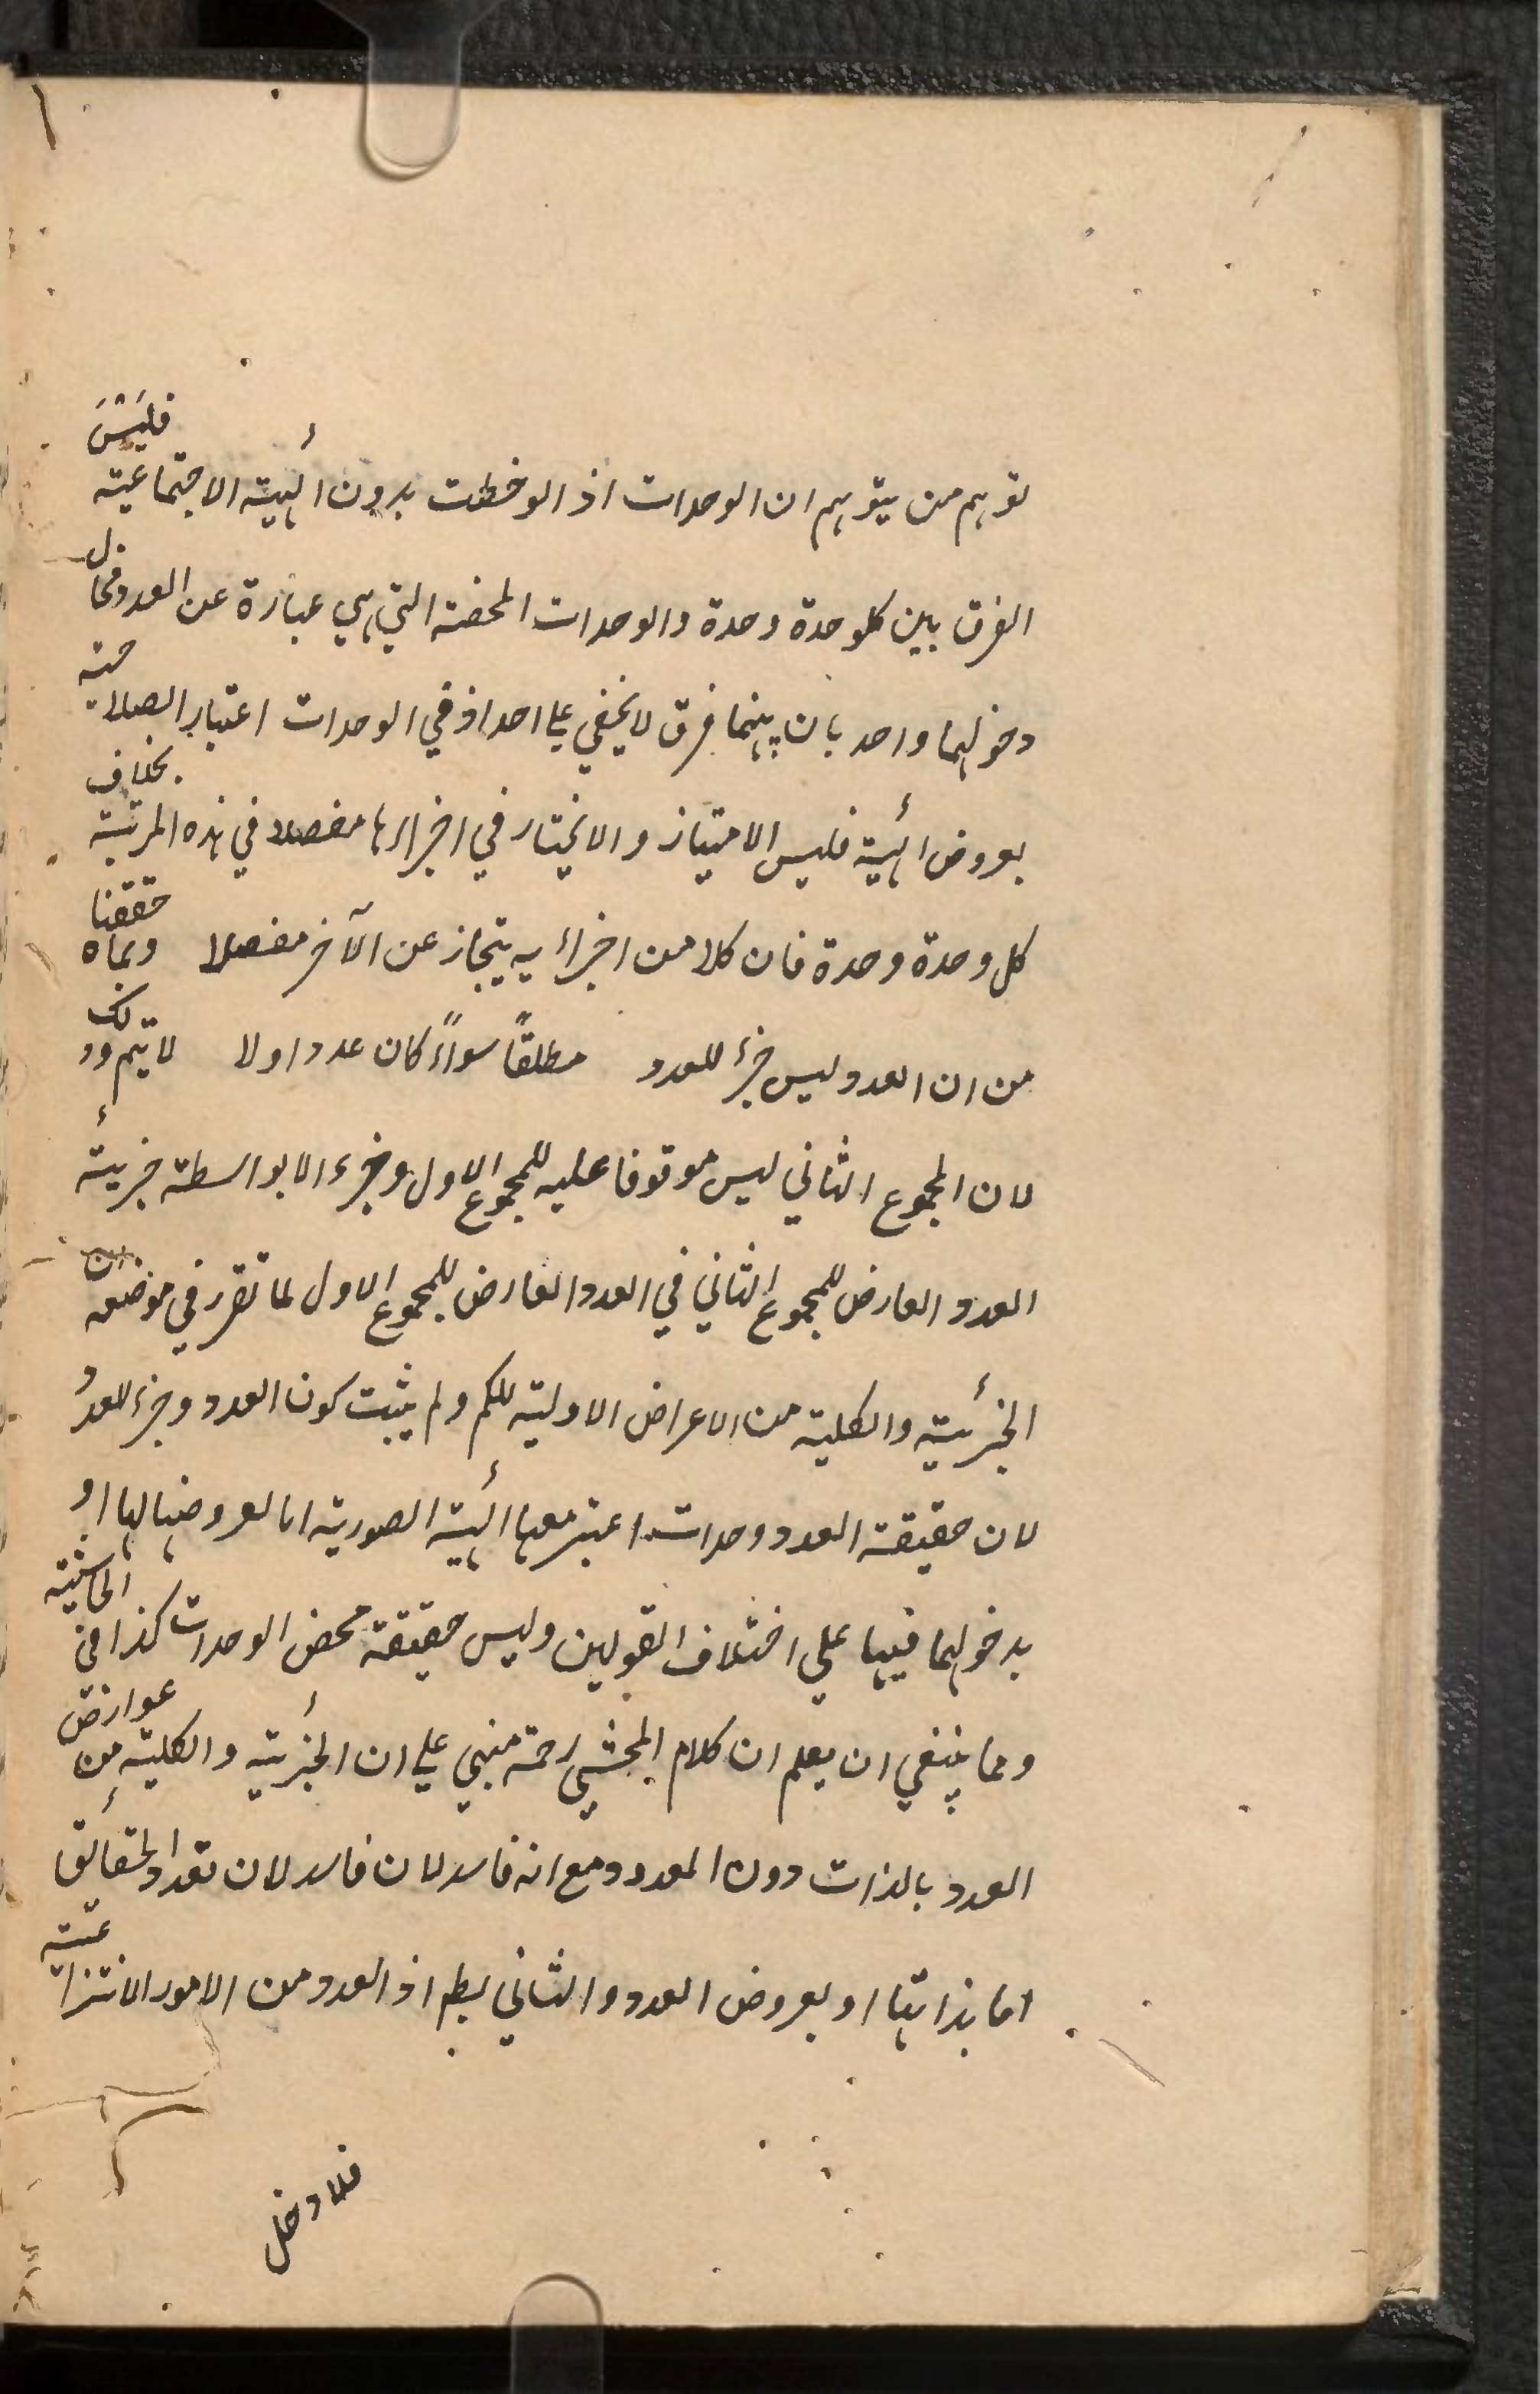 توهم من يتوهم ان الوحدات اذ الوخطت بدون الهيئة الاجتماعية فليس
الفرق بين كلوحدة وحدة والوحدات المحضة التي هي عبارة عن العدد فحال
دخولهما واحد بان بينهما فرق لا يخفي علي احد اذ في الوحدات اعتبار الصلاحية
بعروض الهيئة فليس الامتياز والانحياز في اجزائها مفصلا في هذه المرتبة بخلاف
كل وحدة وحدة فان كلا من اجزائيه يتجاز عن الآخر مفصلا وبماه حققنا
من ان العدد ليس جزء للعدد مطلقاً سواءً كان عدد اولا لا يتم وذلك
لان المجموع الثاني ليس موقوفا عليه للمجموع الاول وجزء الا بواسطة جزئية
العدد العارض للمجموع الثاني في العدد العارض للمجموع الاول لما تقرر في موضعه ان
الجزئية والكلية من الاعراض الاولية للكم ولم يثبت كون العدد وجزء للعدد
لان حقيقة العدد وحدات اعتبر معها الهيئة الصورية اما لعروضها لها او
بدخولهما فيها علي اختلاف القولين وليس حقيقة محض الوحدات كذا في الحاشية
ومما ينبغي ان يعلم ان كلام المحشي رحمة مبني علي ان الجزئية والكلية من عوارض
العدد بالذات دون المعدود مع انه فاسد لان فاسد لان تعداد الحقائق
اما بذاتها او بعروض العدد والثاني بطم اذ العدد من الامور الانتزاعية
فلا دخل